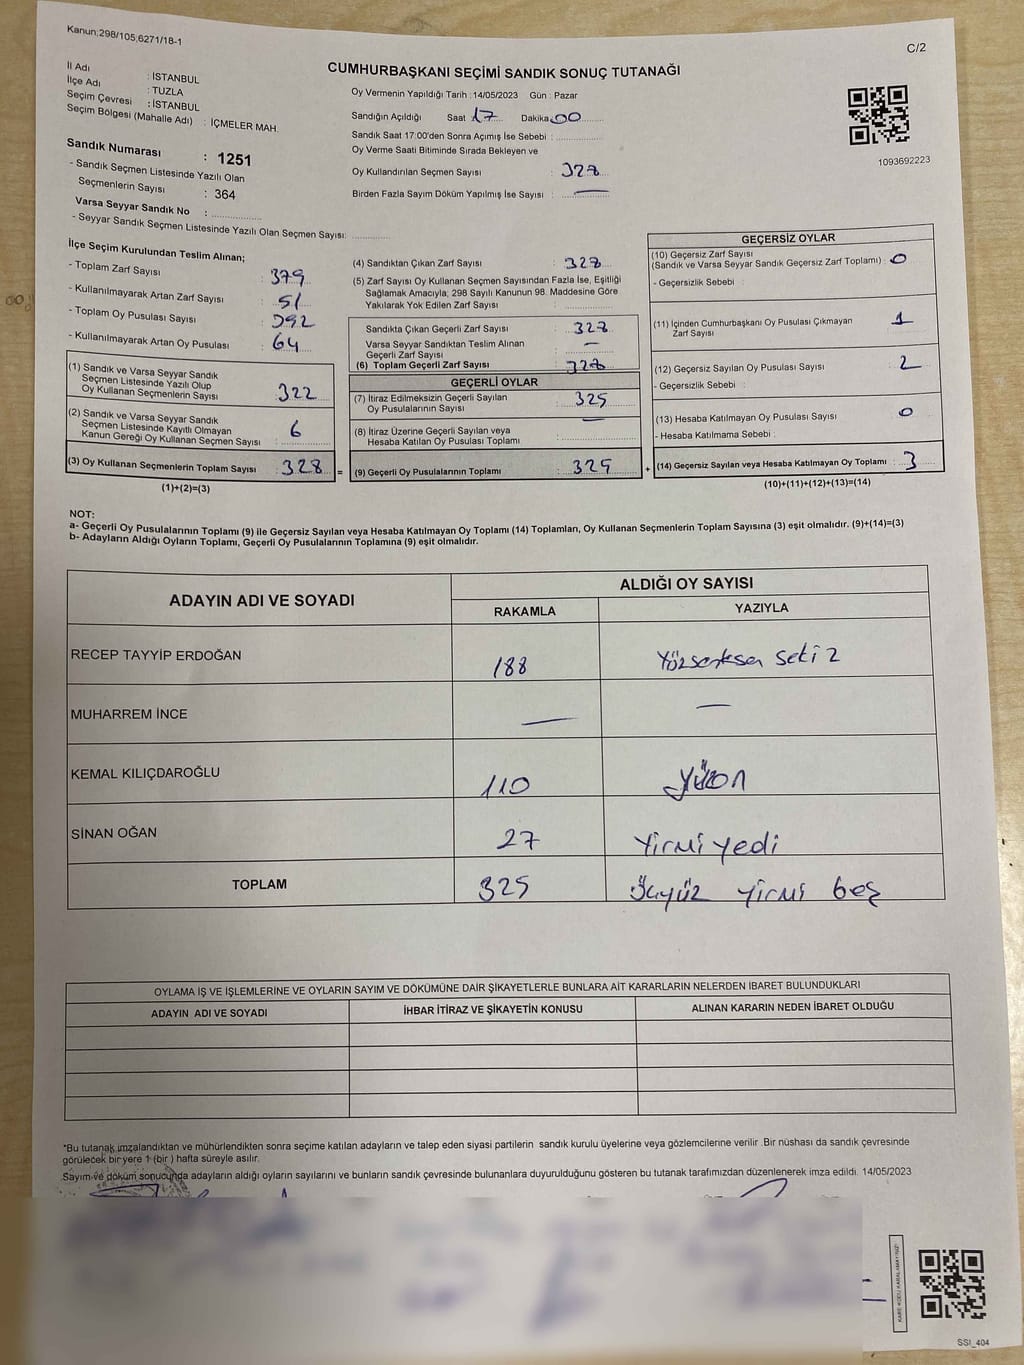 Kanun;298/105,6271/18-1
C/2
CUMHURBAŞKANI SEÇİMİ SANDIK SONUÇ TUTANAĞI
İl Adı : İSTANBUL
İlçe Adı : TUZLA
Seçim Çevresi : İSTANBUL
Seçim Bölgesi (Mahalle Adı) : İÇMELER MAH.
Sandık Numarası : 1251
- Sandık Seçmen Listesinde Yazılı Olan
Seçmenlerin Sayısı : 364
Varsa Seyyar Sandık No :
- Seyyar Sandık Seçmen Listesinde Yazılı Olan Seçmen Sayısı:
Oy Vermenin Yapıldığı Tarih :14/05/2023 Gün : Pazar
Sandığın Açıldığı Saat 17 Dakika 00
Sandık Saat 17:00'den Sonra Açımış İse Sebebi :
Oy Verme Saati Bitiminde Sırada Bekleyen ve
Oy Kullandırılan Seçmen Sayısı : 328
Birden Fazla Sayım Döküm Yapılmış İse Sayısı : —
1093692223
İlçe Seçim Kurulundan Teslim Alınan;
- Toplam Zarf Sayısı : 379
- Kullanılmayarak Artan Zarf Sayısı : 51
- Toplam Oy Pusulası Sayısı : 392
- Kullanılmayarak Artan Oy Pusulası : 64
(1) Sandık ve Varsa Seyyar Sandık
Seçmen Listesinde Yazılı Olup
Oy Kullanan Seçmenlerin Sayısı : 322
(2) Sandık ve Varsa Seyyar Sandık
Seçmen Listesinde Kayıtlı Olmayan
Kanun Gereği Oy Kullanan Seçmen Sayısı : 6
(3) Oy Kullanan Seçmenlerin Toplam Sayısı : 328
(1)+(2)=(3)
(4) Sandıktan Çıkan Zarf Sayısı : 328
(5) Zarf Sayısı Oy Kullanan Seçmen Sayısından Fazla İse, Eşitliği
Sağlamak Amacıyla, 298 Sayılı Kanunun 98. Maddesine Göre
Yakılarak Yok Edilen Zarf Sayısı :
Sandıkta Çıkan Geçerli Zarf Sayısı : 328
Varsa Seyyar Sandıktan Teslim Alınan
Geçerli Zarf Sayısı : —
(6) Toplam Geçerli Zarf Sayısı : 328
GEÇERLİ OYLAR
(7) İtiraz Edilmeksizin Geçerli Sayılan
Oy Pusulalarının Sayısı : 325
(8) İtiraz Üzerine Geçerli Sayılan veya
Hesaba Katılan Oy Pusulası Toplamı : —
= (9) Geçerli Oy Pusulalarının Toplamı : 325
GEÇERSİZ OYLAR
(10) Geçersiz Zarf Sayısı
(Sandık ve Varsa Seyyar Sandık Geçersiz Zarf Toplamı) : 0
- Geçersizlik Sebebi :
(11) İçinden Cumhurbaşkanı Oy Pusulası Çıkmayan
Zarf Sayısı : 1
(12) Geçersiz Sayılan Oy Pusulası Sayısı : 2
- Geçersizlik Sebebi :
(13) Hesaba Katılmayan Oy Pusulası Sayısı : 0
- Hesaba Katılmama Sebebi :
+ (14) Geçersiz Sayılan veya Hesaba Katılmayan Oy Toplamı : 3
(10)+(11)+(12)+(13)=(14)
NOT:
a- Geçerli Oy Pusulalarının Toplamı (9) ile Geçersiz Sayılan veya Hesaba Katılmayan Oy Toplamı (14) Toplamları, Oy Kullanan Seçmenlerin Toplam Sayısına (3) eşit olmalıdır. (9)+(14)=(3)
b- Adayların Aldığı Oyların Toplamı, Geçerli Oy Pusulalarının Toplamına (9) eşit olmalıdır.
ADAYIN ADI VE SOYADI
ALDIĞI OY SAYISI
RAKAMLA YAZIYLA
RECEP TAYYİP ERDOĞAN 188 Yüzseksen sekiz
MUHARREM İNCE — —
KEMAL KILIÇDAROĞLU 110 Yüzon
SİNAN OĞAN 27 Yirmi yedi
TOPLAM 325 Üçyüz yirmi beş
OYLAMA İŞ VE İŞLEMLERİNE VE OYLARIN SAYIM VE DÖKÜMÜNE DAİR ŞİKAYETLERLE BUNLARA AİT KARARLARIN NELERDEN İBARET BULUNDUKLARI
ADAYIN ADI VE SOYADI İHBAR İTİRAZ VE ŞİKAYETİN KONUSU ALINAN KARARIN NEDEN İBARET OLDUĞU
*Bu tutanak imzalandıktan ve mühürlendikten sonra seçime katılan adayların ve talep eden siyasi partilerin sandık kurulu üyelerine veya gözlemcilerine verilir .Bir nüshası da sandık çevresinde
görülecek bir yere 1 (bir ) hafta süreyle asılır.
Sayım ve döküm sonucunda adayların aldığı oyların sayılarını ve bunların sandık çevresinde bulunanlara duyurulduğunu gösteren bu tutanak tarafımızdan düzenlenerek imza edildi. 14/05/2023
KARE KODU KARALAMAYINIZ!
SSİ_404